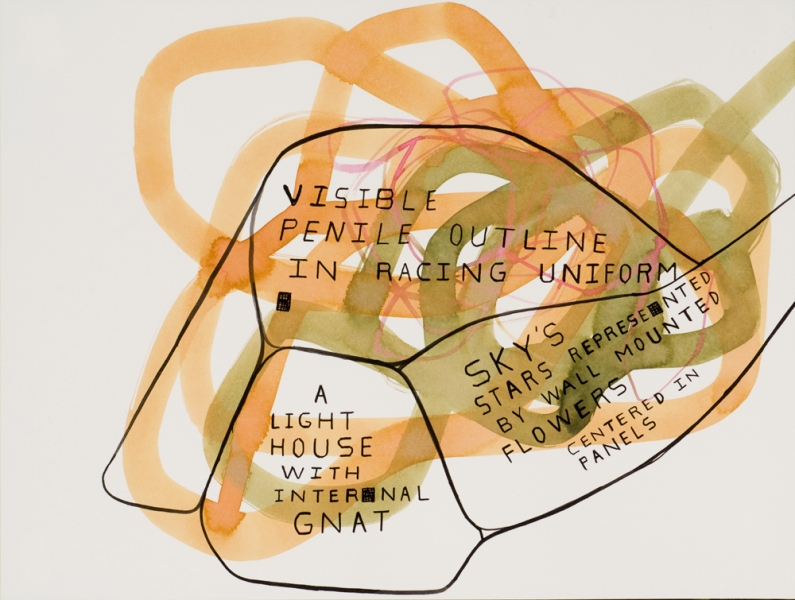 VISIBLE
PENILE OUTLINE
IN RACING UNIFORM
SKY'S
STARS REPRESENTED
BY WALL MOUNTED
FLOWERS
CENTERED IN
PANELS
A
LIGHT
HOUSE
WITH
INTERNAL
GNAT